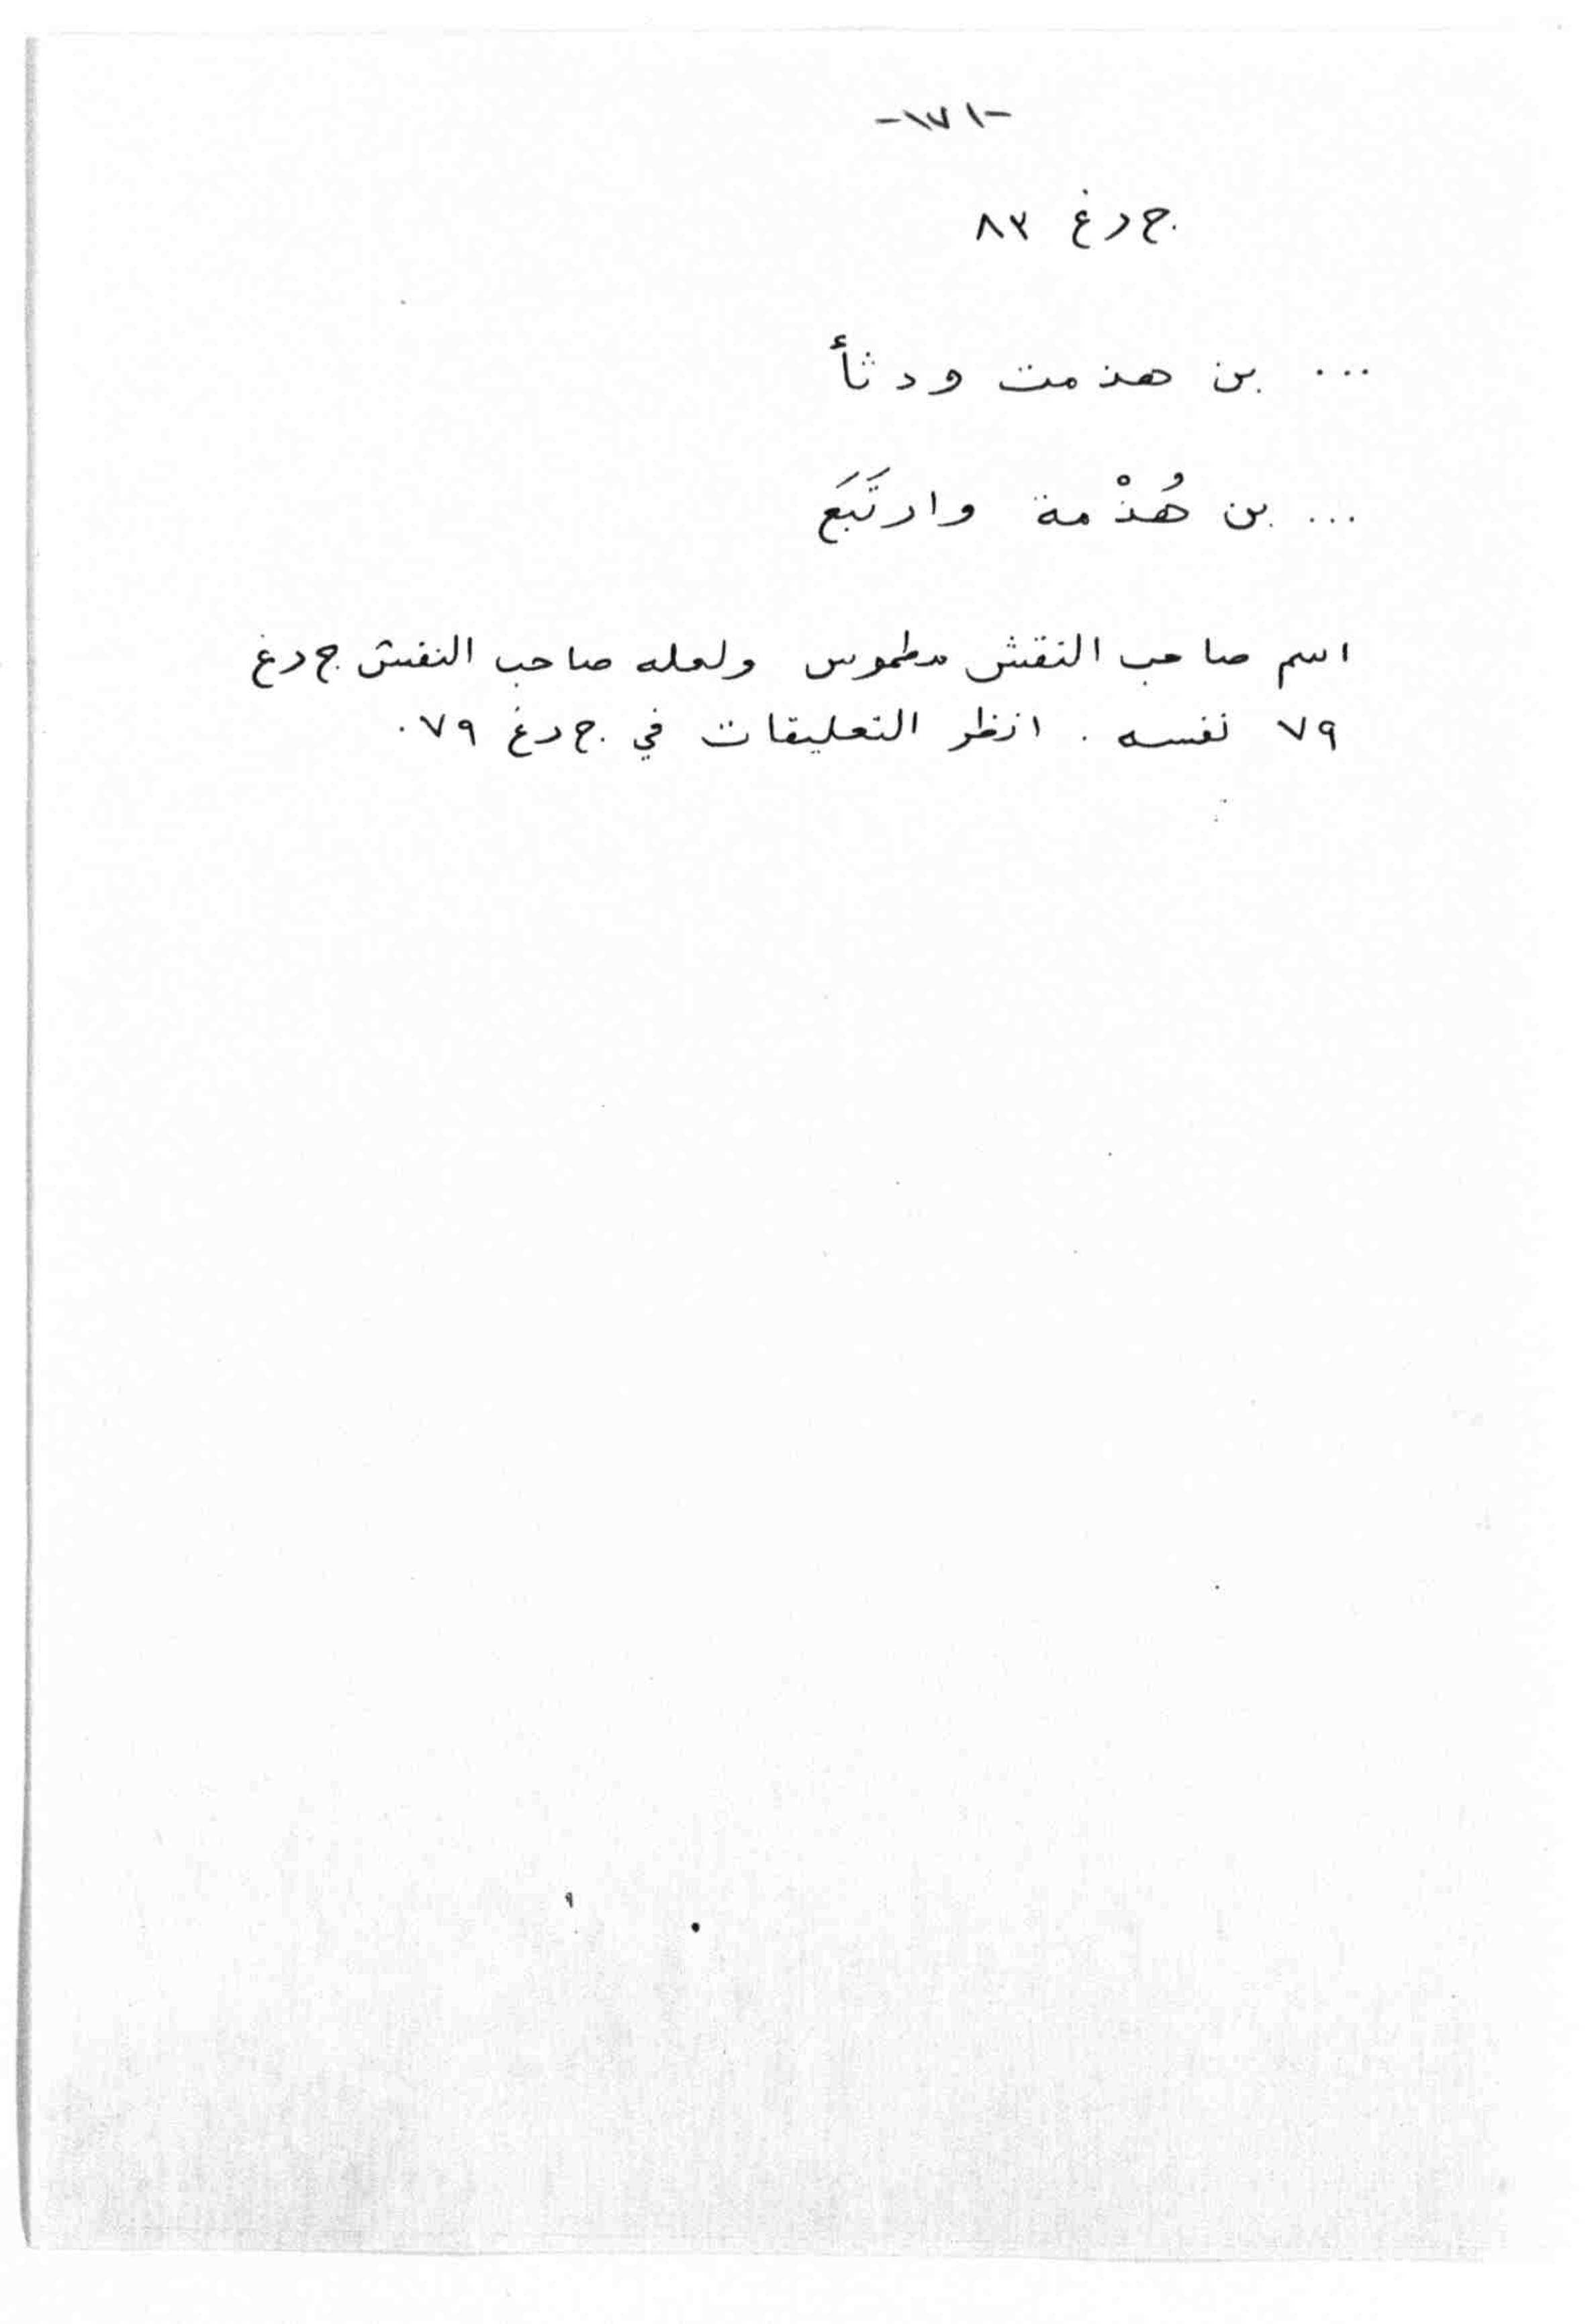 -١٧١-
ج د غ ٨٣
... بن هذمت ودثأ
... بن هُذْمة وارتَبَعَ
اسم صاحب النقش مطموس ولعله صاحب النقش ج د غ
٧٩ نفسه . انظر التعليقات في ج د غ ٧٩.